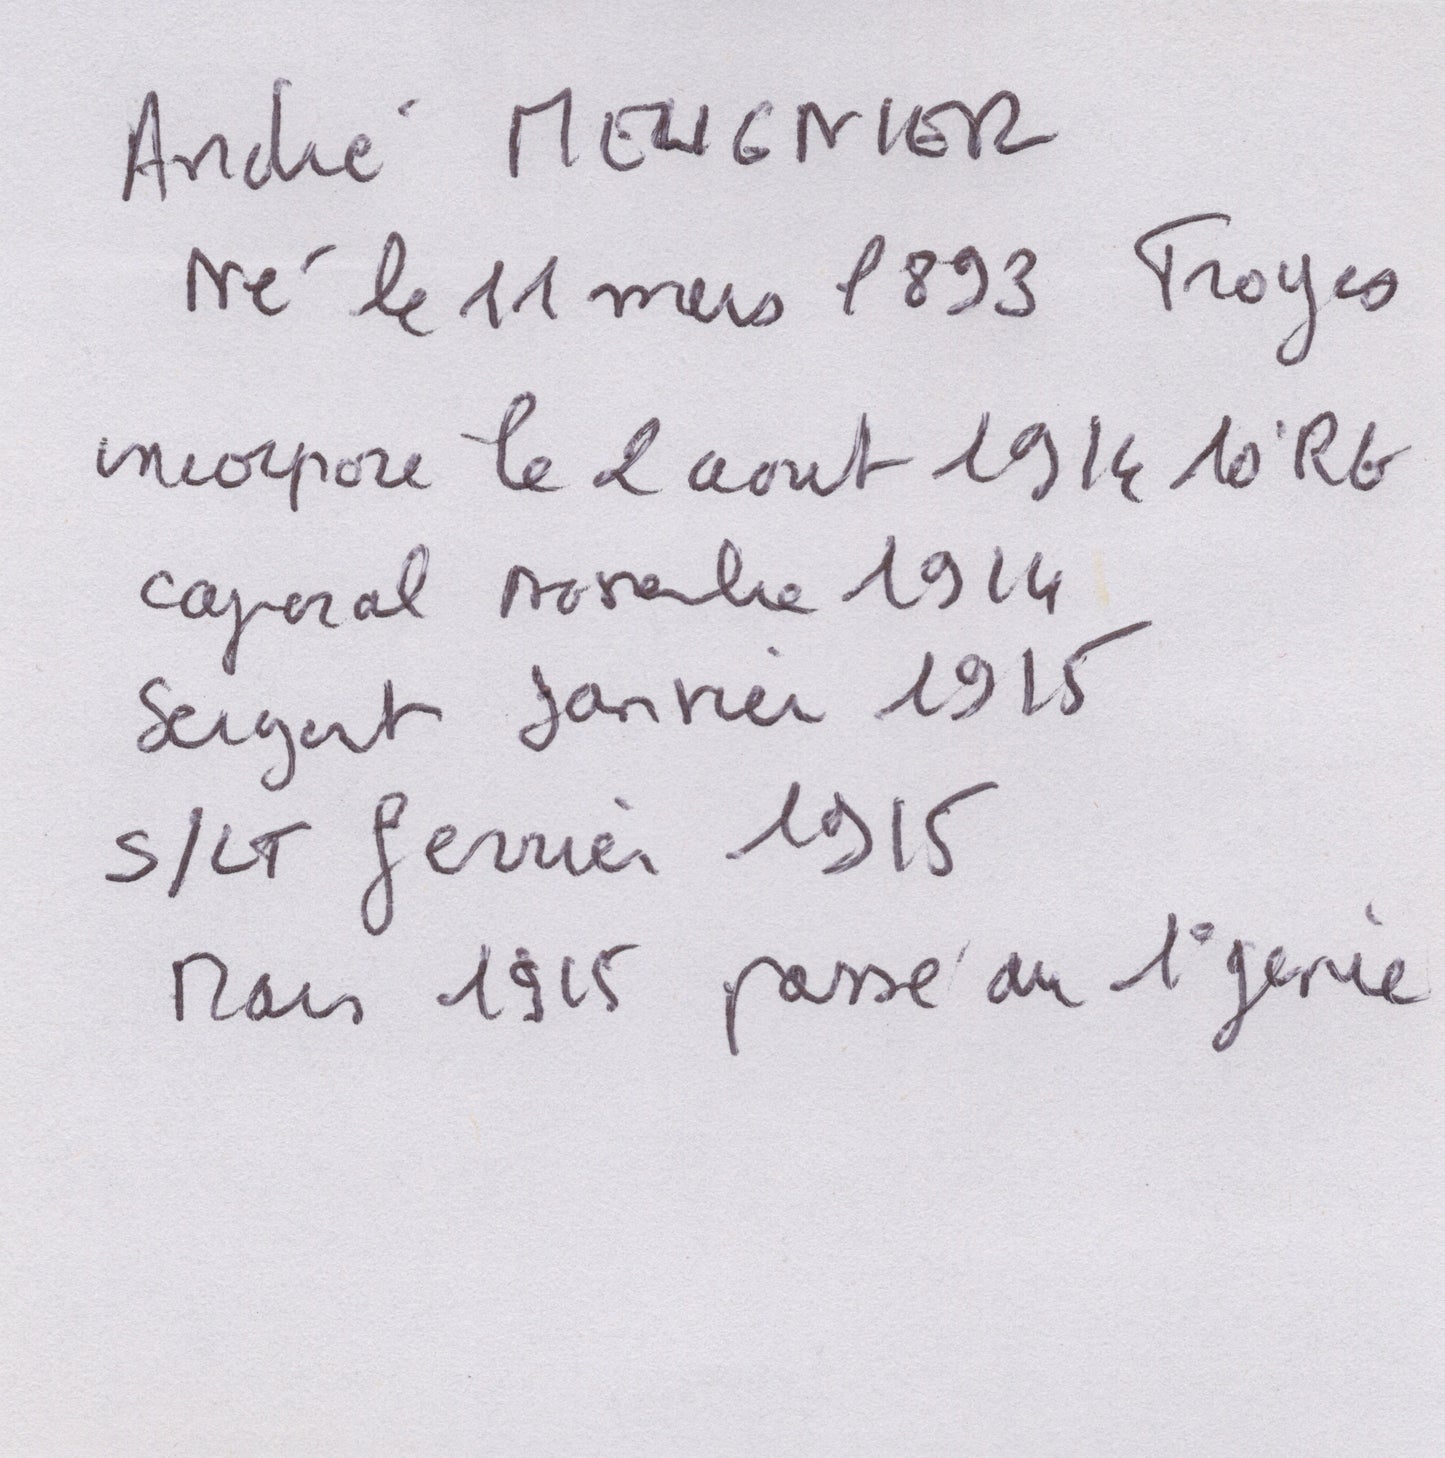 André MEUGNIER
Né le 11 mars 1893 Troyes
incorpore le 2 aout 1914 10° RG
caporal novembre 1914
Sergent Janvier 1915
S/LT fevrier 1915
Mars 1915 passé au 1° genie